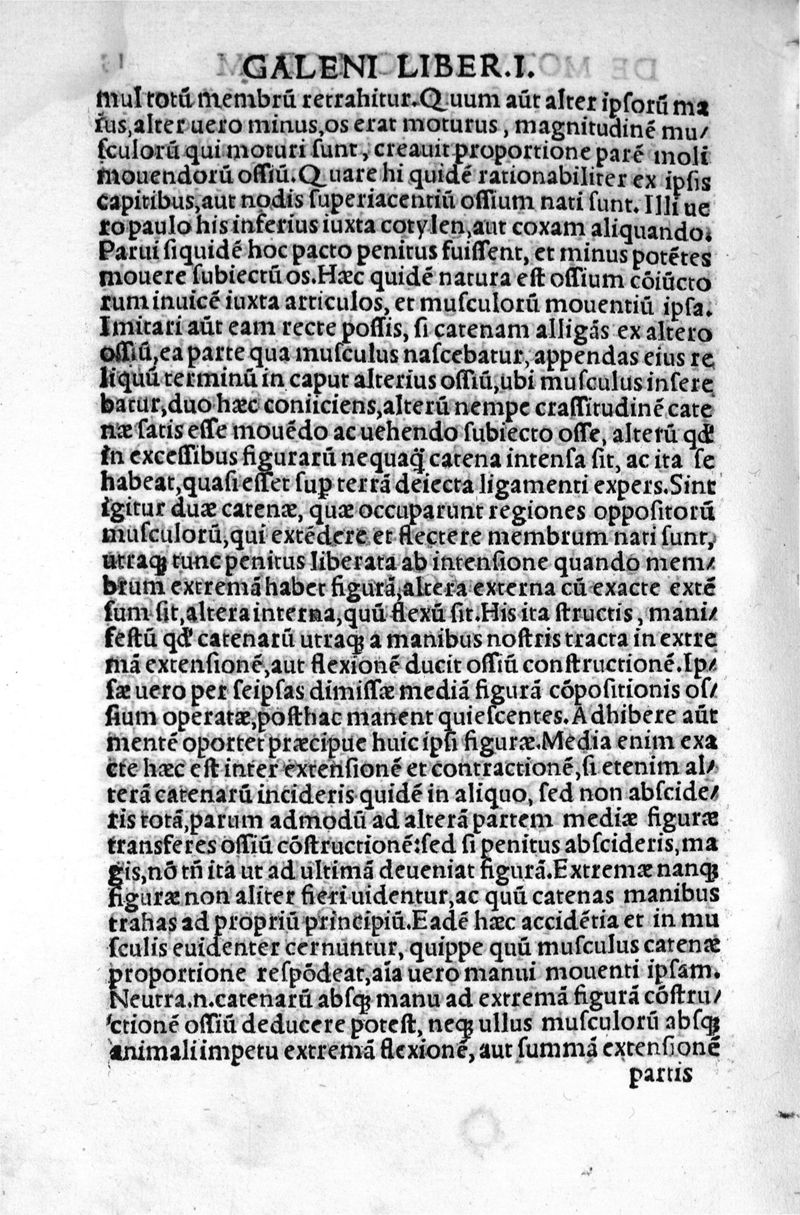 GALENI LIBER.I.
mul totū membrū retrahitur.Quum aūt alter ipsorū ma
ius,alter uero minus,os erat moturus, magnitudinē mu/
sculorū qui moturi sunt, creauit proportione parē moli
mouendorū ossiū.Quare hi quidē rationabiliter ex ipsis
capitibus,aut nodis superiacentiū ossium nati sunt. Illi ue
ro paulo his inferius iuxta cotylen,aut coxam aliquando.
Parui siquidē hoc pacto penitus fuissent, et minus potētes
mouere subiectū os.Hæc quidē natura est ossium cōiūcto
rum inuicē iuxta articulos, et musculorū mouentiū ipsa.
Imitari aūt eam recte possis, si catenam alligās ex altero
ossiū,ea parte qua musculus nascebatur, appendas eius re
liquū terminū in caput alterius ossiū,ubi musculus insere
batur,duo hæc coniiciens,alterū nempe crassitudinē cate
næ satis esse mouēdo ac uehendo subiecto osse, alterū qđ
in excessibus figurarū nequaq̃ catena intensa sit, ac ita se
habeat,quasi esset sup terrā deiecta ligamenti expers.Sint
igitur duæ catenæ, quæ occuparunt regiones oppositorū
musculorū,qui extēdere et flectere membrum nati sunt,
utraqꝫ tunc penitus liberata ab intensione quando mem/
brum extremā habet figurā,altera externa cū exacte extē
sum sit,altera interna,quū flexū sit.His ita structis, mani/
festū qđ catenarū utraqꝫ a manibus nostris tracta in extre
mā extensionē,aut flexionē ducit ossiū constructionē.Ip/
sæ uero per seipsas dimissæ mediā figurā cōpositionis os/
sium operatæ,posthac manent quiescentes.Adhibere aūt
mentē oportet præcipue huic ipsi figuræ.Media enim exa
cte hæc est inter extensionē et contractionē,si etenim al/
terā catenarū incideris quidē in aliquo, sed non abscide/
ris totā,parum admodū ad alterā partem mediæ figuræ
transferes ossiū cōstructionē:sed si penitus abscideris,ma
gis,nō tñ ita ut ad ultimā deueniat figurā.Extremæ nanqꝫ
figuræ non aliter fieri uidentur,ac quū catenas manibus
trahas ad propriū principiū.Eadē hæc accidētia et in mu
sculis euidenter cernuntur, quippe quū musculus catenæ
proportione respōdeat,aīa uero manui mouenti ipsam.
Neutra.n.catenarū absqꝫ manu ad extremā figurā cōstru/
ctionē ossiū deducere potest, neqꝫ ullus musculorū absqꝫ
animali impetu extremā flexionē, aut summā extensionē
partis